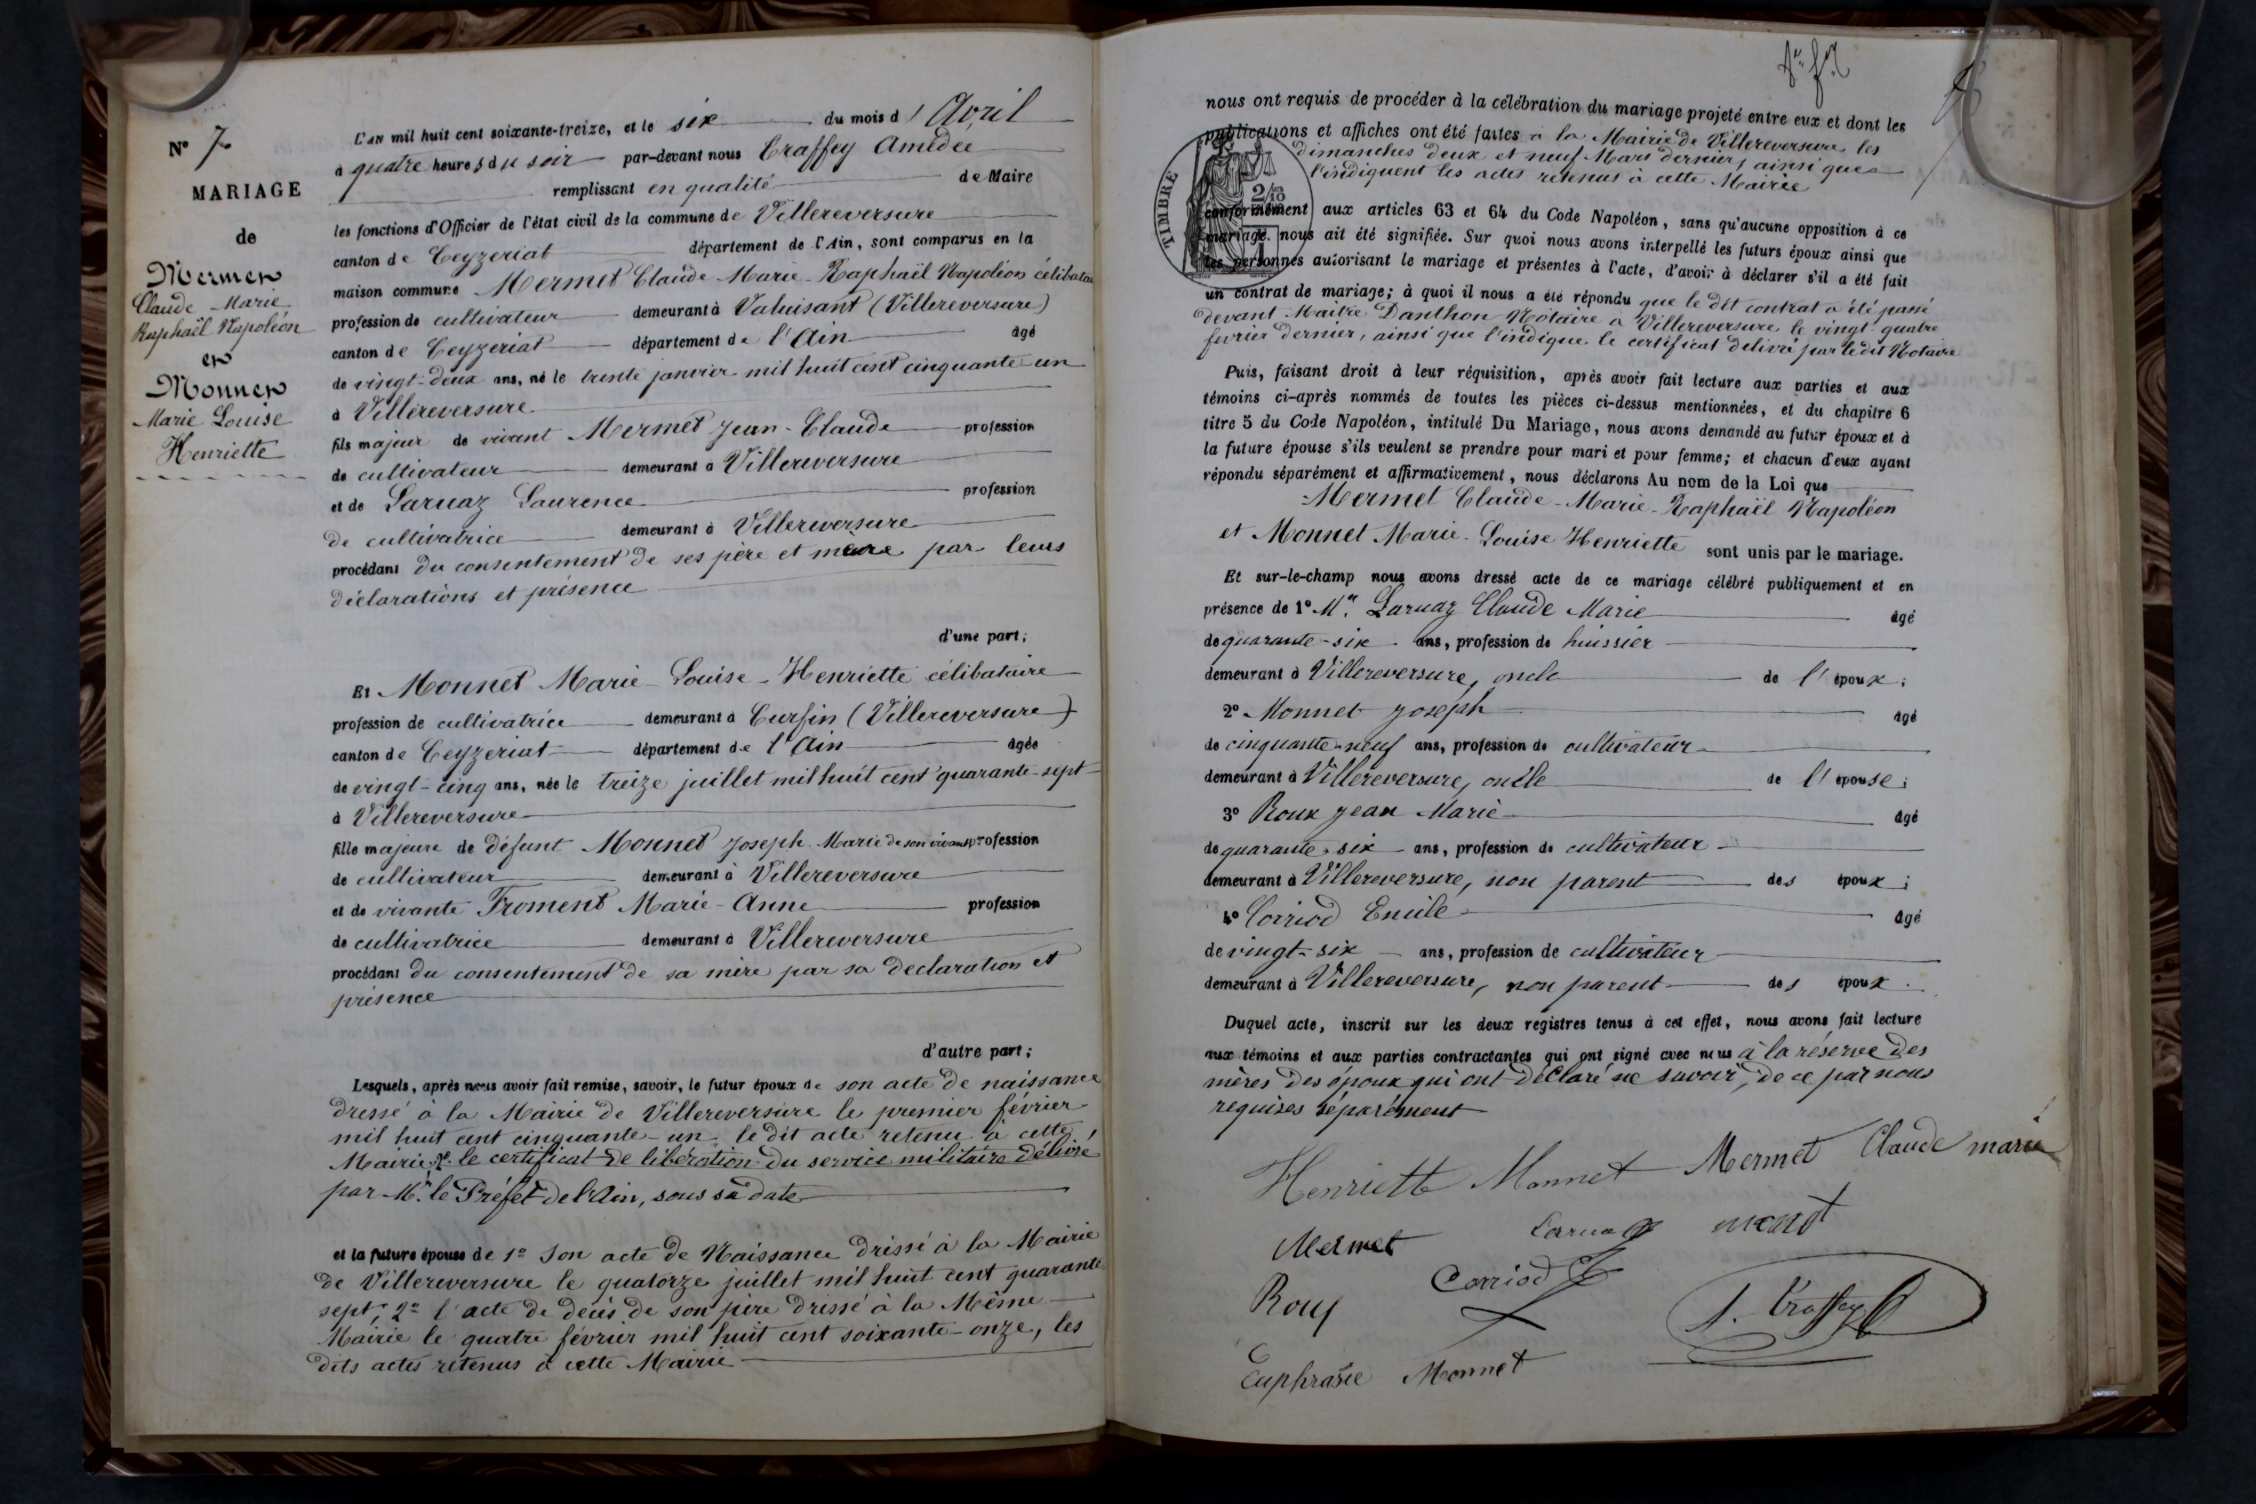 N° 7
MARIAGE
de
Mermet
Claude Marie
Raphaël Napoléon
et
Monnet
Marie Louise
Henriette
L'an mil huit cent soixante-treize, et le six du mois d'Avril
à quatre heures du soir par-devant nous Craffey Amédée
remplissant en qualité de Maire
les fonctions d'Officier de l'état civil de la commune de Villereversure
canton de Ceyzeriat département de l'Ain, sont comparus en la
maison commune Mermet Claude Marie Raphaël Napoléon célibataire
profession de cultivateur demeurant à Valuisant (Villereversure)
canton de Ceyzeriat département de l'Ain âgé
de vingt-deux ans, né le trente janvier mil huit cent cinquante un
à Villereversure
fils majeur de vivant Mermet Jean-Claude profession
de cultivateur demeurant à Villereversure
et de Laruaz Laurence profession
de cultivatrice demeurant à Villereversure
procédant du consentement de ses père et mère par leurs
déclarations et présence
d'une part;
Et Monnet Marie-Louise-Henriette célibataire
profession de cultivatrice demeurant à Curfin (Villereversure)
canton de Ceyzeriat département de l'Ain âgée
de vingt-cinq ans, née le treize juillet mil huit cent quarante-sept
à Villereversure
fille majeure de défunt Monnet Joseph Marie de son vivant profession
de cultivateur demeurant à Villereversure
et de vivante Froment Marie-Anne profession
de cultivatrice demeurant à Villereversure
procédant du consentement de sa mère par sa déclaration et
présence
d'autre part;
Lesquels, après nous avoir fait remise, savoir, le futur époux de son acte de naissance
dressé à la Mairie de Villereversure le premier février
mil huit cent cinquante-un le dit acte retenu à cette
Mairie, 2° le certificat de libération du service militaire délivré
par Mr le Préfet de l'Ain, sous sa date
et la future épouse de 1° Son acte de Naissance dressé à la Mairie
de Villereversure le quatorze juillet mil huit cent quarante
sept, 2° l'acte de décès de son père dressé à la Même
Mairie le quatre février mil huit cent soixante-onze, les
dits actes retenus à cette Mairie
nous ont requis de procéder à la célébration du mariage projeté entre eux et dont les
publications et affiches ont été faites à la Mairie de Villereversure les
dimanches deux et neuf Mars dernier, ainsi que
l'indiquent les actes retenus à cette Mairie
TIMBRE
2/10
1
conformément aux articles 63 et 64 du Code Napoléon, sans qu'aucune opposition à ce
mariage nous ait été signifiée. Sur quoi nous avons interpellé les futurs époux ainsi que
les personnes autorisant le mariage et présentes à l'acte, d'avoir à déclarer s'il a été fait
un contrat de mariage; à quoi il nous a été répondu que le dit contrat a été passé
devant Maître Danthon Notaire à Villereversure le vingt quatre
fevrier dernier, ainsi que l'indique le certificat delivré par le dit Notaire
Puis, faisant droit à leur réquisition, après avoir fait lecture aux parties et aux
témoins ci-après nommés de toutes les pièces ci-dessus mentionnées, et du chapitre 6
titre 5 du Code Napoléon, intitulé Du Mariage, nous avons demandé au futur époux et à
la future épouse s'ils veulent se prendre pour mari et pour femme; et chacun d'eux ayant
répondu séparément et affirmativement, nous déclarons Au nom de la Loi que
Mermet Claude-Marie-Raphaël Napoléon
et Monnet Marie-Louise Henriette sont unis par le mariage.
Et sur-le-champ nous avons dressé acte de ce mariage célébré publiquement et en
présence de 1° Mr. Laruaz Claude Marie âgé
de quarante-six ans, profession de huissier
demeurant à Villereversure, oncle de l'époux;
2° Monnet Joseph âgé
de cinquante-neuf ans, profession de cultivateur
demeurant à Villereversure, oncle de l'épouse;
3° Roux Jean Marie âgé
de quarante-six ans, profession de cultivateur
demeurant à Villereversure, non parent des époux;
4° Corriod Emile âgé
de vingt-six ans, profession de cultivateur
demeurant à Villereversure, non parent des époux.
Duquel acte, inscrit sur les deux registres tenus à cet effet, nous avons fait lecture
aux témoins et aux parties contractantes qui ont signé avec nous à la réserve des
mères des époux qui ont déclaré ne savoir, de ce par nous
requises séparément
Henriette Monnet Mermet Claude marie
Mermet Laruaz monet
Roux Corriod A. Craffey
Euphrasie Monnet